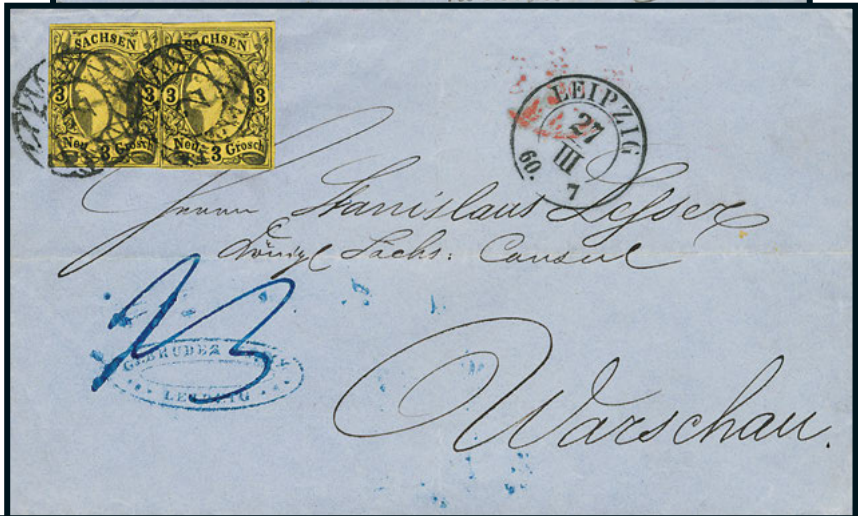 SACHSEN SACHSEN
3 3 3 3
Neu- 3 Grosch Neu- 3 Grosch
LEIPZIG
27
III
60. 7
Herrn Stanislaus Lesser
Königl Sächs: Consul
3
GEBRUDER
LEIPZIG
Warschau.